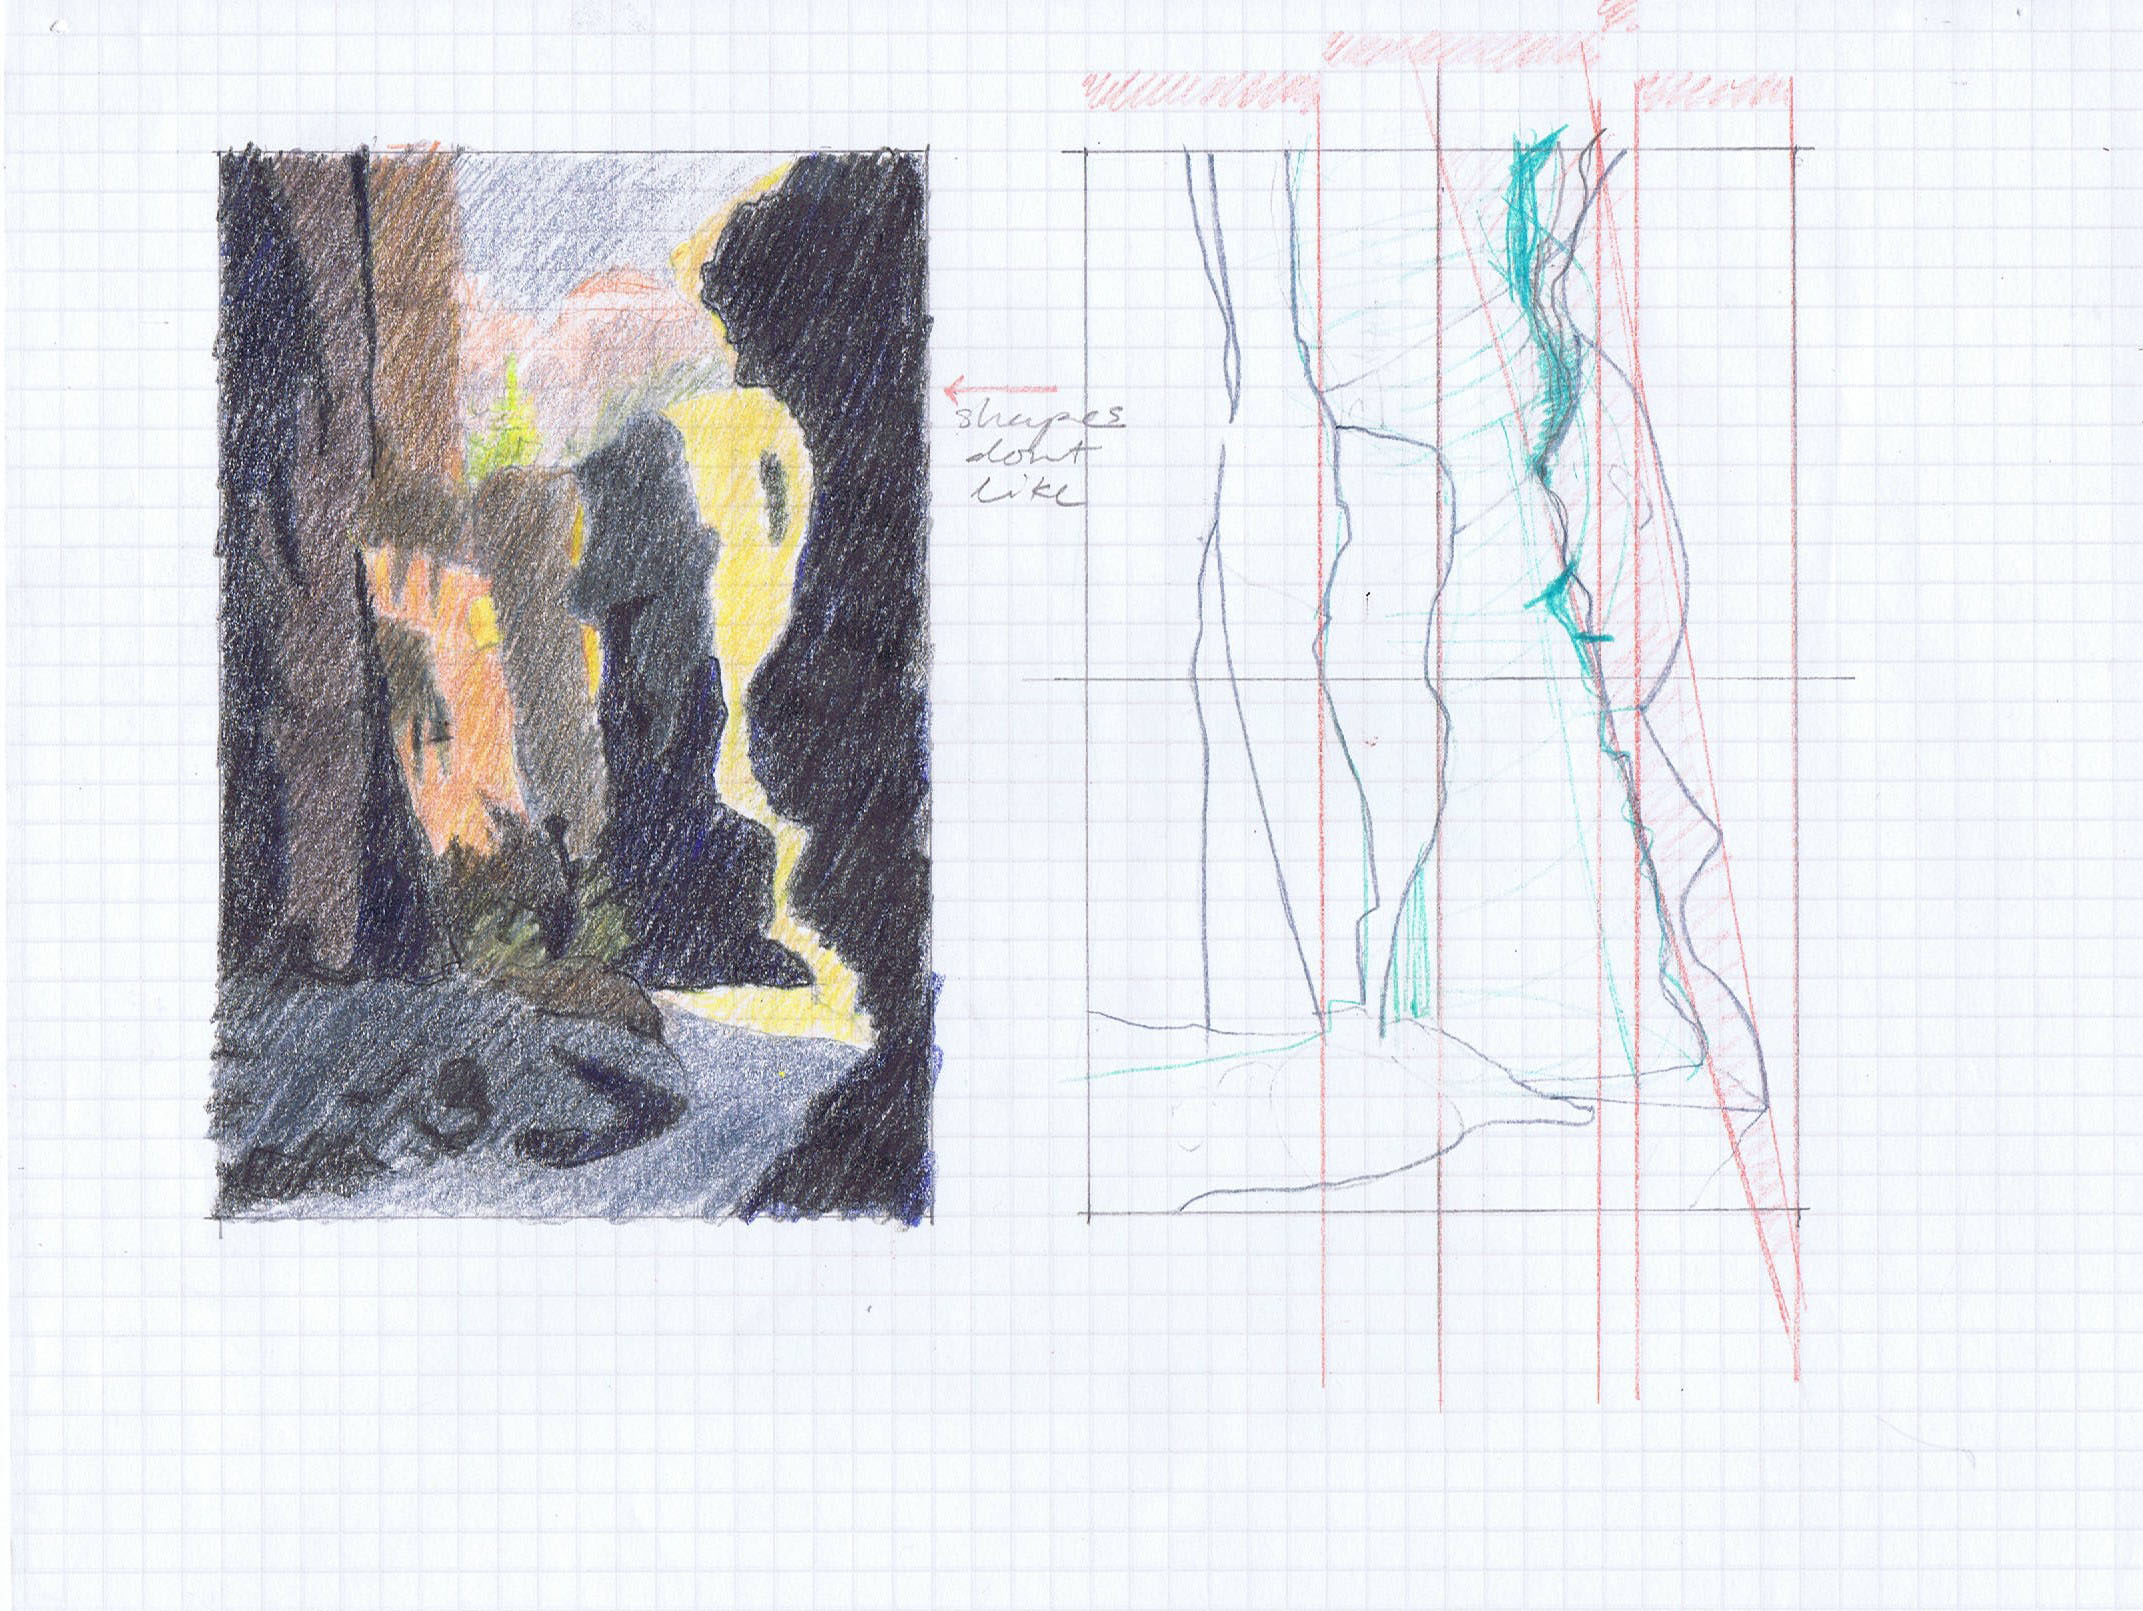 shapes
dont
like